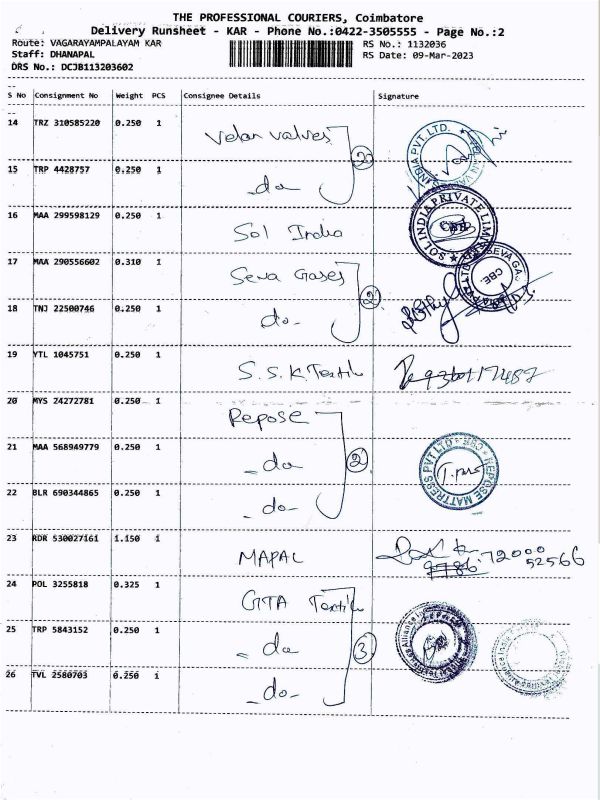 THE PROFESSIONAL COURIERS, Coimbatore
Delivery Runsheet - KAR - Phone No.:0422-3505555 - Page No.:2
Route: VAGARAYAMPALAYAM KAR RS No.: 1132036
Staff: DHANAPAL RS Date: 09-Mar-2023
DRS No.: DCJB113203602
S No Consignment No Weight PCS Consignee Details Signature
14 TRZ 310585220 0.250 1 Velan valves 2
15 TRP 4428757 0.250 1 -do
16 MAA 299598129 0.250 1 Sol India
17 MAA 290556602 0.310 1 Seva Gases 2
18 TNJ 22500746 0.250 1 do-
19 YTL 1045751 0.250 1 S.S.K.Textile
20 MYS 24272781 0.250 1 Repose
21 MAA 568949779 0.250 1 -do 2
22 BLR 690344865 0.250 1 -do-
23 RDR 530027161 1.150 1 MAPAL 72000
52566
24 POL 3255818 0.325 1 GTA Textile
25 TRP 5843152 0.250 1 - do 3
26 TVL 2580703 0.250 1 -do-
SOL INDIA PRIVATE LIMITED
CBE.
REPOSE MATTRESS PVT LTD CBE